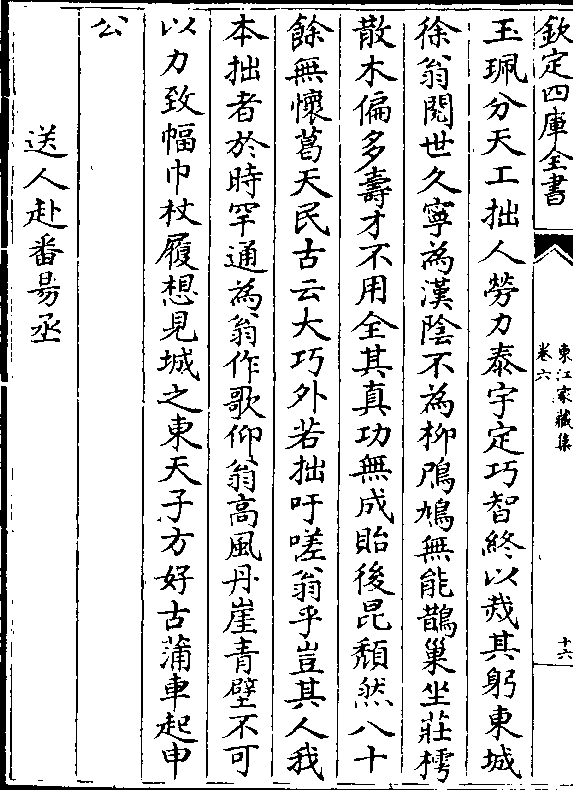 欽定四庫全書
東江家藏集
卷六
十六
玉珮分天工拙人勞力泰宇定巧智終以烖其躬東城
徐翁閱世久寧為漢陰不為柳鳲鳩無能鵲巢坐莊樗
散木偏多壽才不用全其真功無成貽後昆頽然八十
餘無懷葛天民古云大巧外若拙吁嗟翁乎豈其人我
本拙者於時罕通為翁作歌仰翁高風丹崖青壁不可
以力致幅巾杖履想見城之東天子方好古蒲車起申
公
送人赴番昜丞